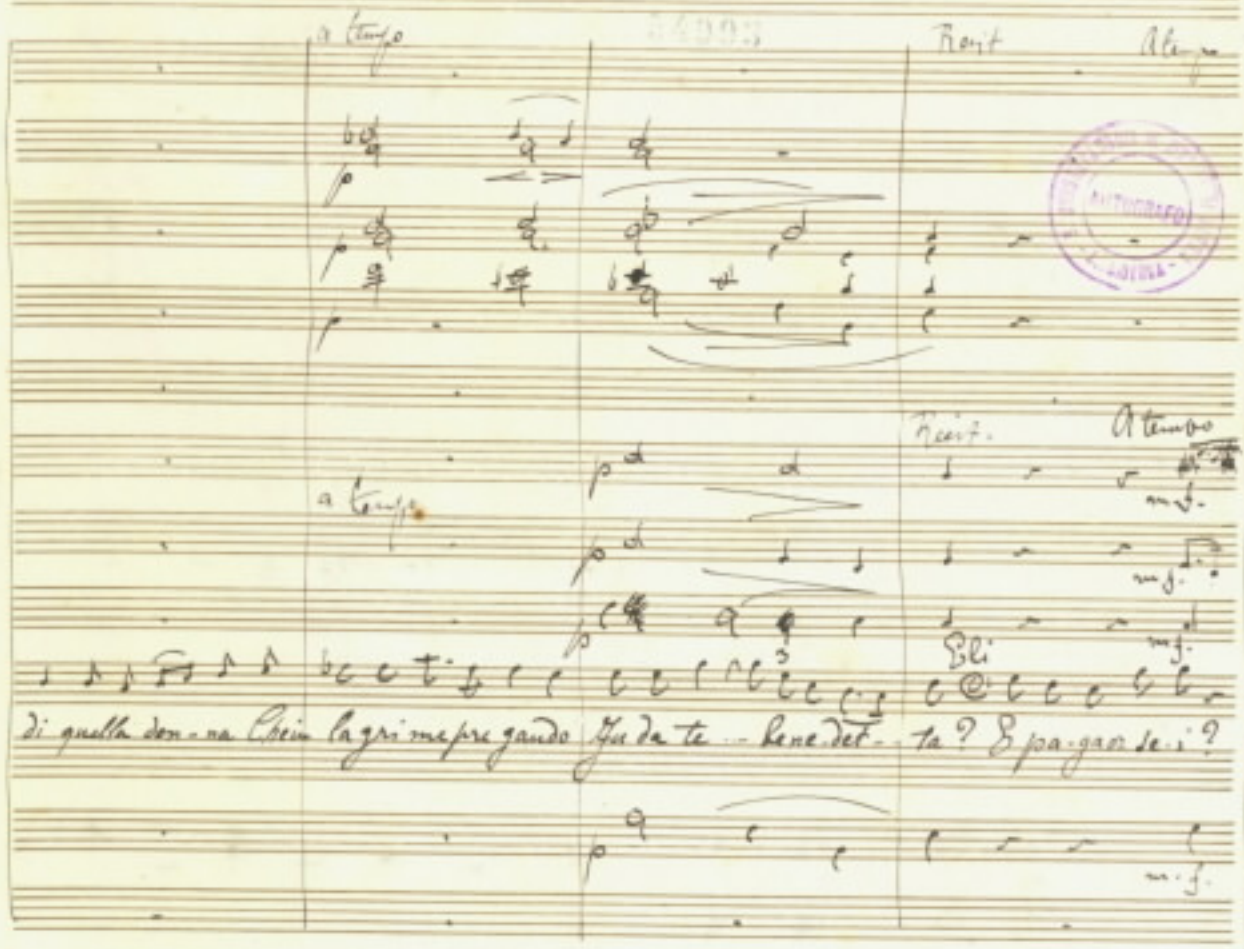 a tempo
Recit
A tempo
p
p
p
AUTOGRAFO
Recit.
A tempo
a tempo
p
m.f.
p
m.f.
p
m.f.
3
Eli
di quella don-na Che in lagrime pregando Fu da te -- bene-det-- ta? E pa-gaor se-i?
p
m.f.